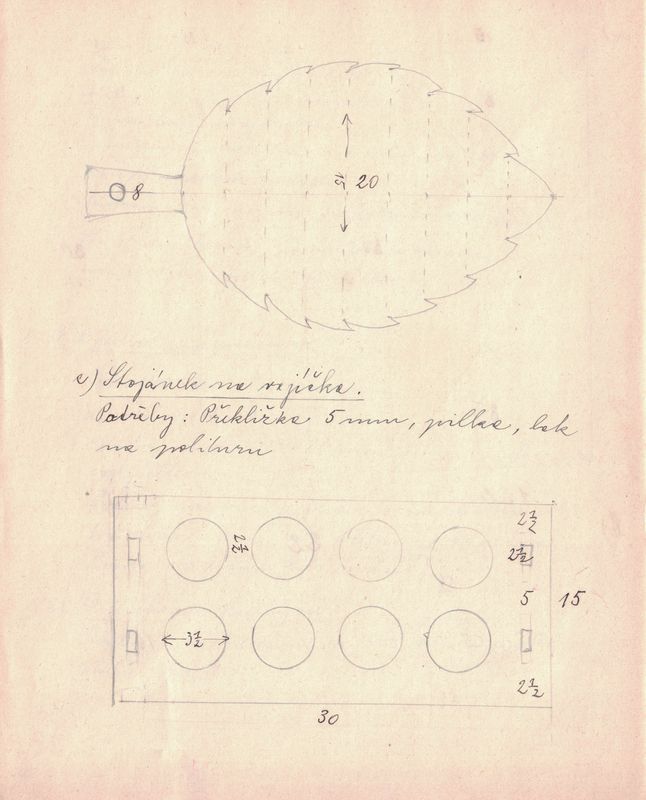 8
15 20
c) Stojánek na vajíčka.
Potřeby: Překližka 5 mm, pilka, lak
na polituru
2 1/2
2 1/2
2 1/2
5
15
3 1/2
2 1/2
30